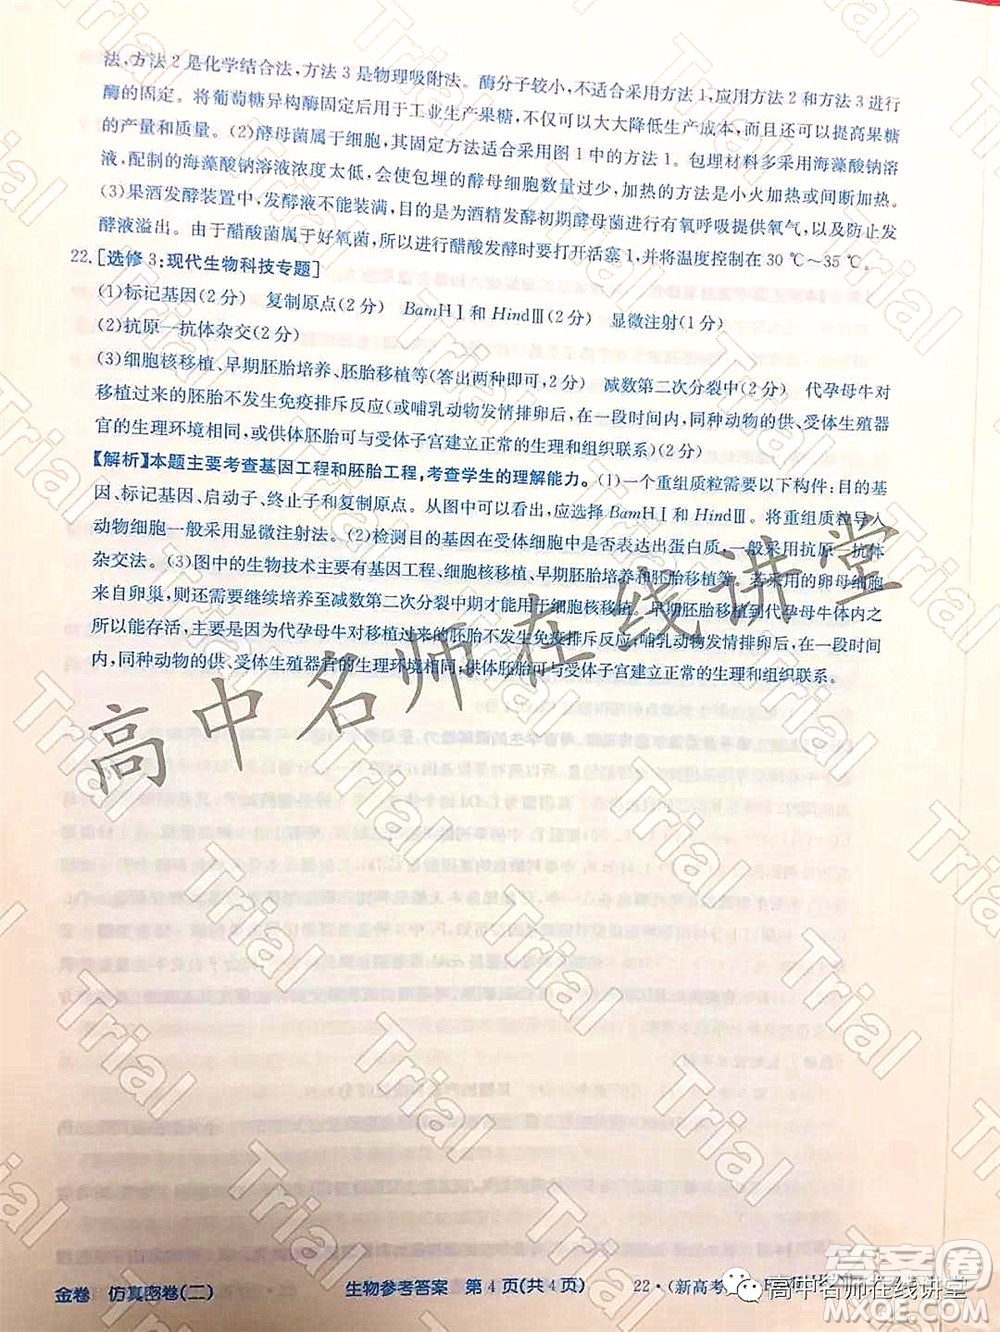 法,方法 2 是化学结合法,方法 3 是物理吸附法。酶分子较小,不适合采用方法 1,应用方法 2 和方法 3 进行
酶的固定。将葡萄糖异构酶固定后用于工业生产果糖,不仅可以大大降低生产成本,而且还可以提高果糖
的产量和质量。(2)酵母菌属于细胞,其固定方法适合采用图 1 中的方法 1。包埋材料多采用海藻酸钠溶
液,配制的海藻酸钠溶液浓度太低,会使包埋的酵母细胞数量过少,加热的方法是小火加热或间断加热。
(3)果酒发酵装置中,发酵液不能装满,目的是为酒精发酵初期酵母菌进行有氧呼吸提供氧气,也防止发
酵液溢出。由于醋酸菌属于好氧菌,所以进行醋酸发酵时要打开活塞 1,并将温度控制在 30 ℃~35 ℃。
22.[选修 3:现代生物科技专题]
(1)标记基因(2 分) 复制原点(2 分) BamHⅠ和 HindⅢ(2 分) 显微注射(1 分)
(2)抗原—抗体杂交(2 分)
(3)细胞核移植、早期胚胎培养、胚胎移植等(答出两种即可,2 分) 减数第二次分裂中(2 分) 代孕母牛对
移植过来的胚胎不发生免疫排斥反应(或哺乳动物发情排卵后,在一段时间内,同种动物的供、受体生殖器
官的生理环境相同,或供体胚胎可与受体子宫建立正常的生理和组织联系)(2 分)
【解析】本题主要考查基因工程和胚胎工程,考查学生的理解能力。(1)一个重组质粒需要以下构件:目的基
因、标记基因、启动子、终止子和复制原点。从图中可以看出,应选择 BamHⅠ和 HindⅢ。将重组质粒导入
动物细胞一般采用显微注射法。(2)检测目的基因在受体细胞中是否表达出蛋白质,一般采用抗原—抗体
杂交法。(3)图中的生物技术主要有基因工程、细胞核移植、早期胚胎培养和胚胎移植等。若采用的卵母细胞
来自卵巢,则还需要继续培养至减数第二次分裂中期才能用于细胞核移植。早期胚胎移植到代孕母牛体内之
所以能存活,主要是因为代孕母牛对移植过来的胚胎不发生免疫排斥反应;哺乳动物发情排卵后,在一段时间
内,同种动物的供、受体生殖器官的生理环境相同,供体胚胎可与受体子宫建立正常的生理和组织联系。
高中名师在线讲堂
Trial
金卷 仿真密卷(二)
生物参考答案 第 4 页(共 4 页)
22·(新高考)
高中名师在线讲堂
答案圈
MXQE.COM